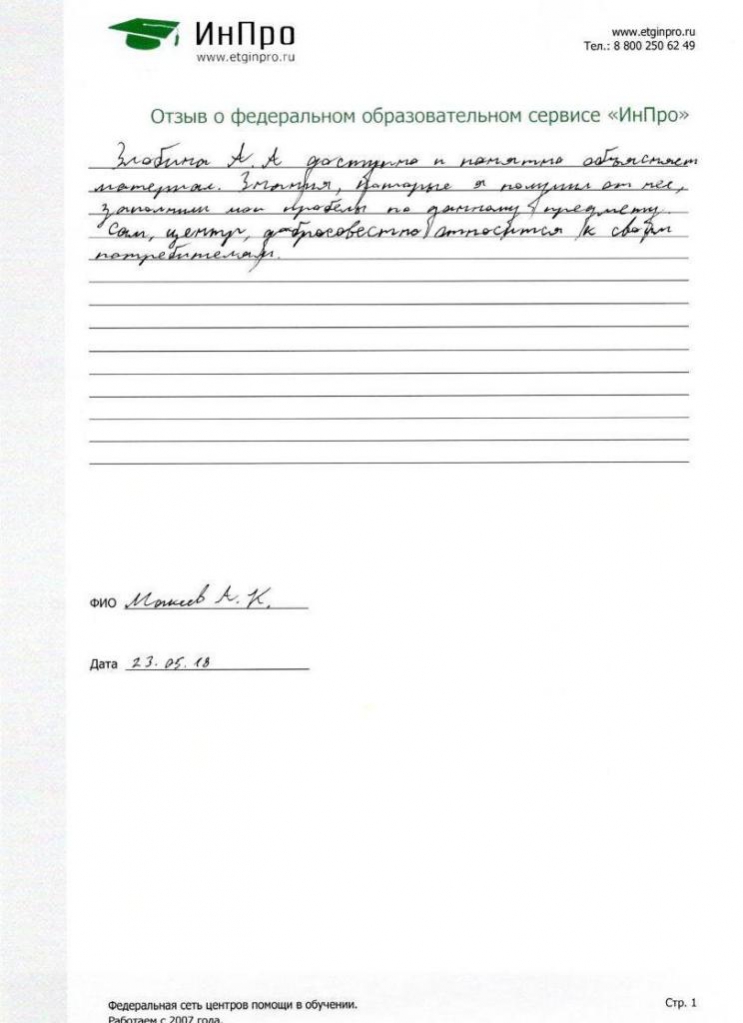 ИнПро
www.etginpro.ru
www.etginpro.ru
Тел.: 8 800 250 62 49
Отзыв о федеральном образовательном сервисе «ИнПро»
Злобина А. А доступно и понятно объясняет
материал. Знания, которые я получил от нее,
заполнили мои пробелы по данному предмету.
Сам, центр, добросовестно относится к своим
потребителям.
ФИО А. К.
Дата 23.05.18
Федеральная сеть центров помощи в обучении.
Работаем с 2007 года.
Стр. 1